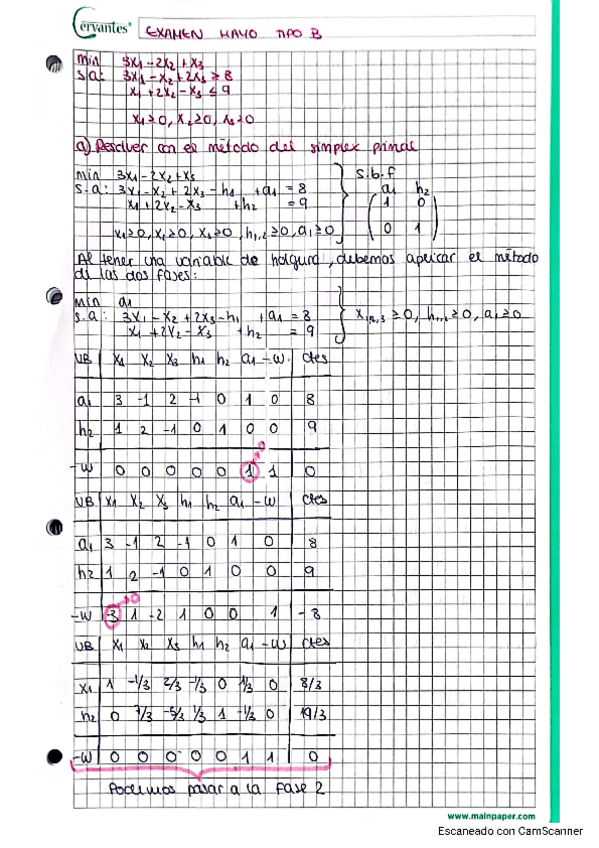 Cervantes® EXAMEN MAYO TIPO B
min 3x1 - 2x2 + x3
s.a: 3x1 - x2 + 2x3 ≥ 8
x1 + 2x2 - x3 ≤ 9
x1 ≥ 0, x2 ≥ 0, x3 ≥ 0
a) Resolver con el método del simplex primal
min 3x1 - 2x2 + x3 s.b.f
s.a: 3x1 - x2 + 2x3 - h1 + a1 = 8 a1 h2
x1 + 2x2 - x3 + h2 = 9 1 0
0 1
x1 ≥ 0, x2 ≥ 0, x3 ≥ 0, h1,2 ≥ 0, a1 ≥ 0
Al tener una variable de holgura, debemos aplicar el método
de las dos fases:
min a1
s.a: 3x1 - x2 + 2x3 - h1 + a1 = 8
x1 + 2x2 - x3 + h2 = 9 x1,2,3 ≥ 0, h1,2 ≥ 0, a1 ≥ 0
VB x1 x2 x3 h1 h2 a1 -w ctes
a1 3 -1 2 -1 0 1 0 8
h2 1 2 -1 0 1 0 0 9
0
-w 0 0 0 0 0 1 1 0
VB x1 x2 x3 h1 h2 a1 -w ctes
a1 3 -1 2 -1 0 1 0 8
h2 1 2 -1 0 1 0 0 9
0
-w 3 1 -2 1 0 0 1 -8
VB x1 x2 x3 h1 h2 a1 -w ctes
x1 1 -1/3 2/3 -1/3 0 1/3 0 8/3
h2 0 7/3 -5/3 1/3 1 -1/3 0 19/3
-w 0 0 0 0 0 1 1 0
Podemos pasar a la fase 2
www.mainpaper.com
Escaneado con CamScanner